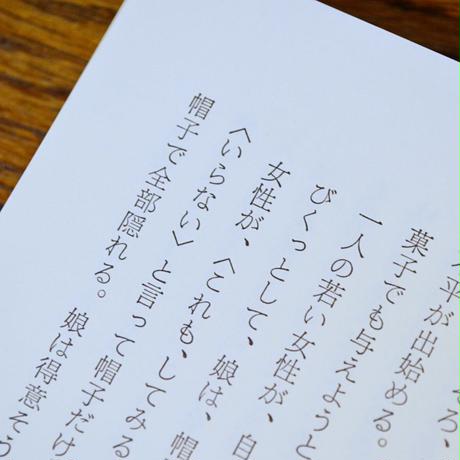 ろ、
平が出始める。
菓子でも与えようと
一人の若い女性が、自
びくっとして、娘は、帽
女性が、〈これも、してみる
〈いらない〉と言って帽子だけ
帽子で全部隠れる。娘は得意そう